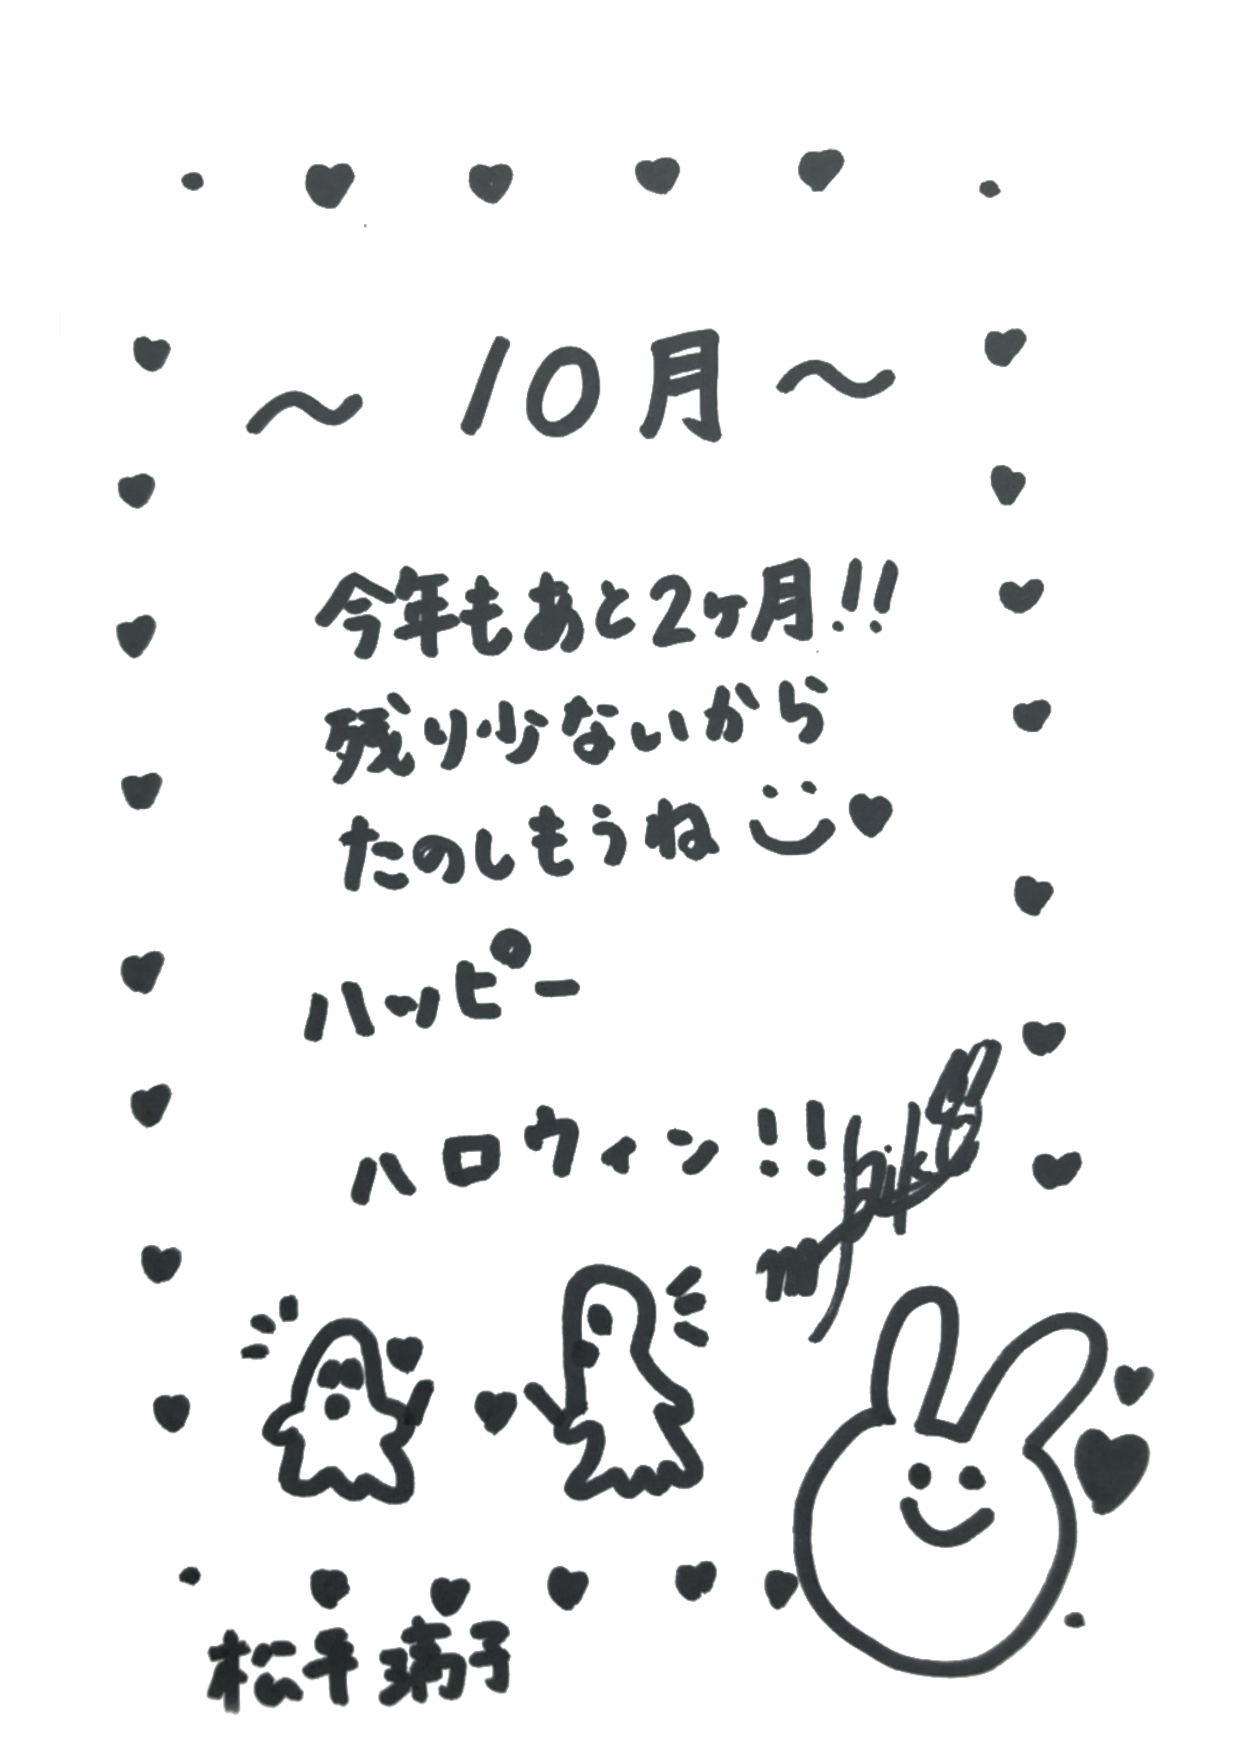 〜10月〜
今年もあと2ヶ月!!
残り少ないから
たのしもうね
ハッピー
ハロウィン!!
松平璃子